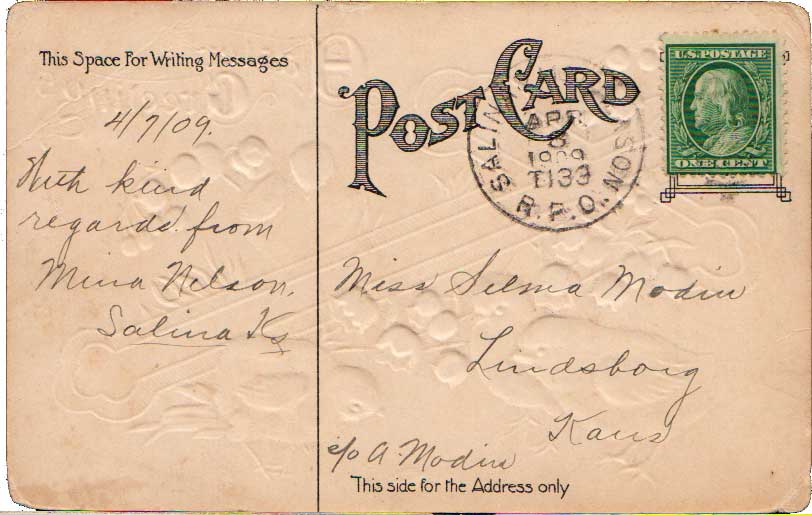 This Space For Writing Messages
4/7/09.
With kind
regards from
Mina Nelson,
Salina Ks
POST CARD
SALINA
APR
8
1909
T133
R.P.O.
U.S. POSTAGE
ONE CENT
Miss Selma Modin
Lindsborg
Kans
c/o A. Modin
This side for the Address only